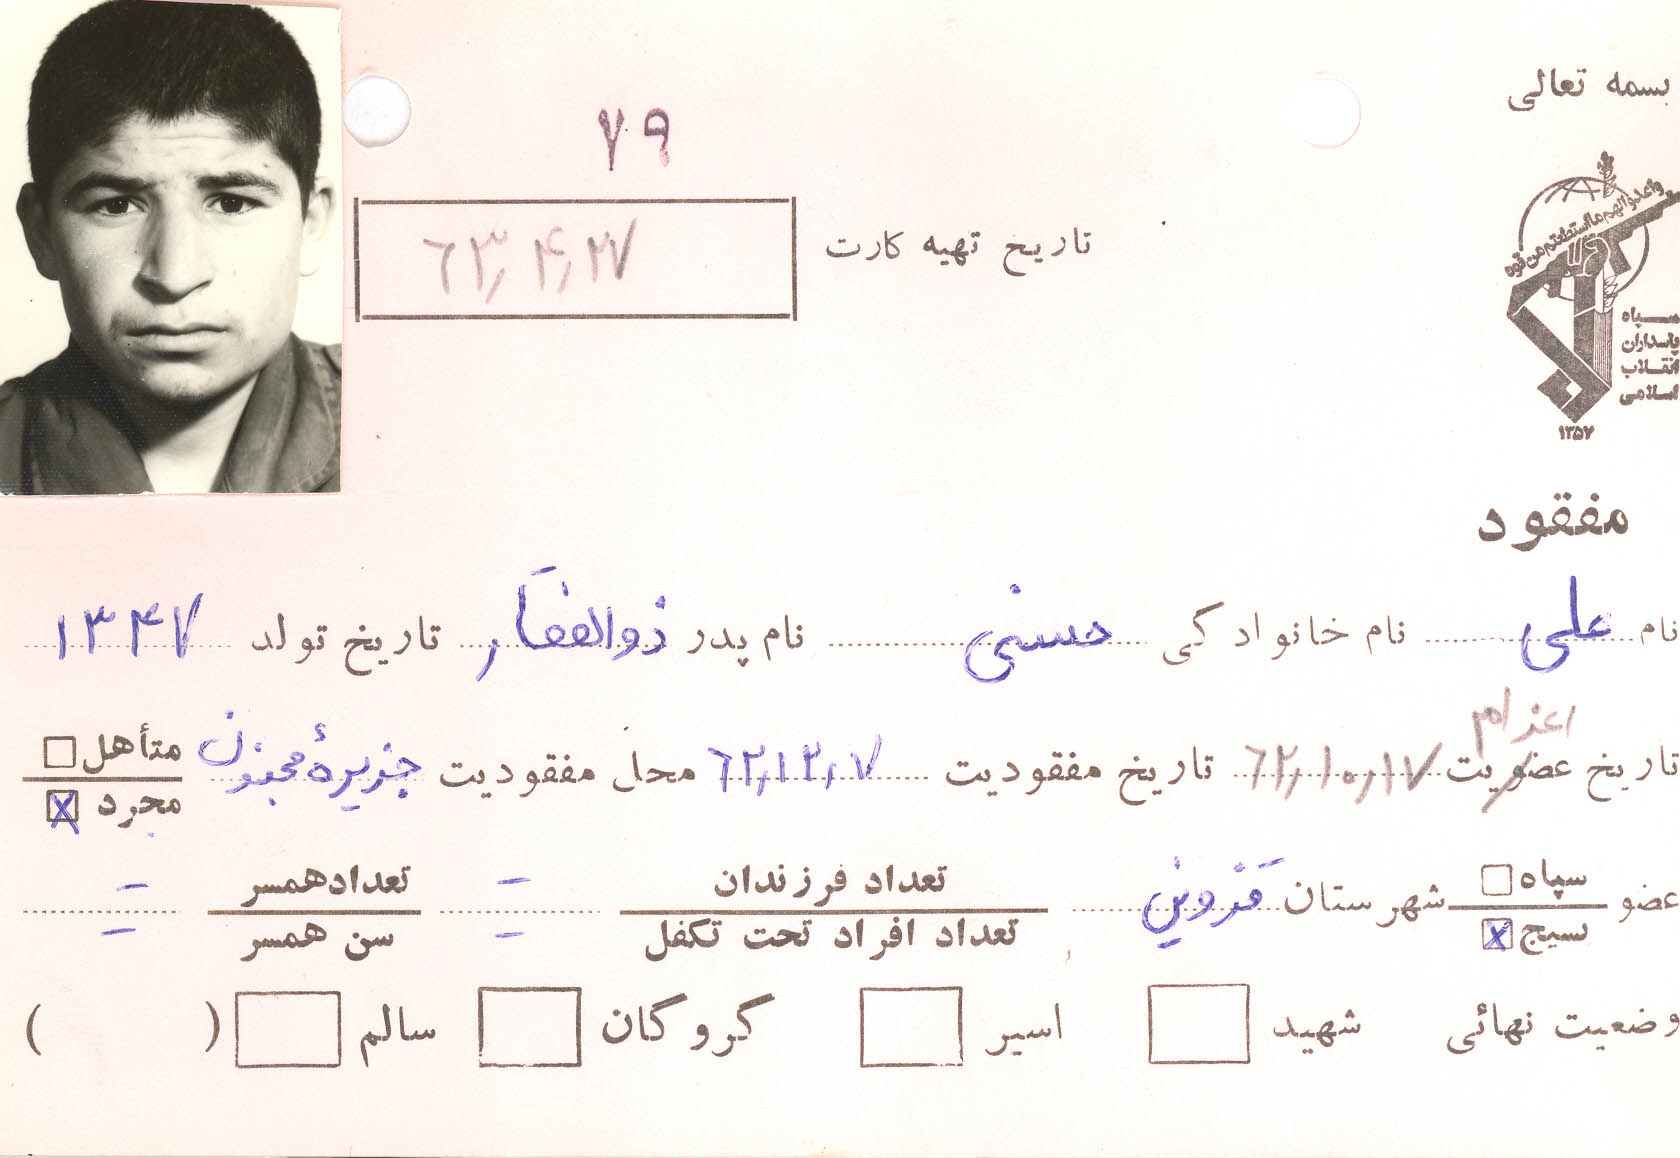 بسمه تعالی
۷۹
تاریخ تهیه کارت ۶۳٫۴٫۲۷
واعدوا لهم ما استطعتم من قوه
سپاه
پاسداران
انقلاب
اسلامی
۱۳۵۷
مفقود
نام علی نام خانوادگی حسنی نام پدر ذوالفقار تاریخ تولد ۱۳۴۷
اعزام
تاریخ عضویت ۶۲٫۱۰٫۱۷ تاریخ مفقودیت ۶۲٫۱۲٫۷ محل مفقودیت جزیرهٔ مجنون متأهل
مجرد x
عضو سپاه شهرستان قزوین تعداد فرزندان – تعداد همسر –
بسیج x تعداد افراد تحت تکفل – سن همسر –
وضعیت نهائی شهید اسیر گروگان سالم ( )